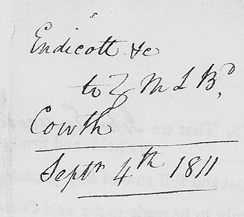 Endicott &c
to Z M L Bᵈ,
Cowth
Septr 4th 1811